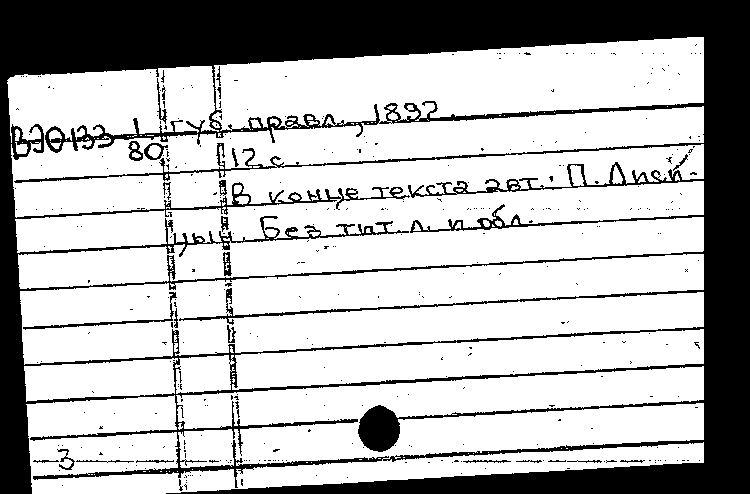 ВЭ0133 1/80 губ. правл., 1892.
12 с.
В конце текста авт.: П. Лиси-
цын. Без тит. л. и обл.
3